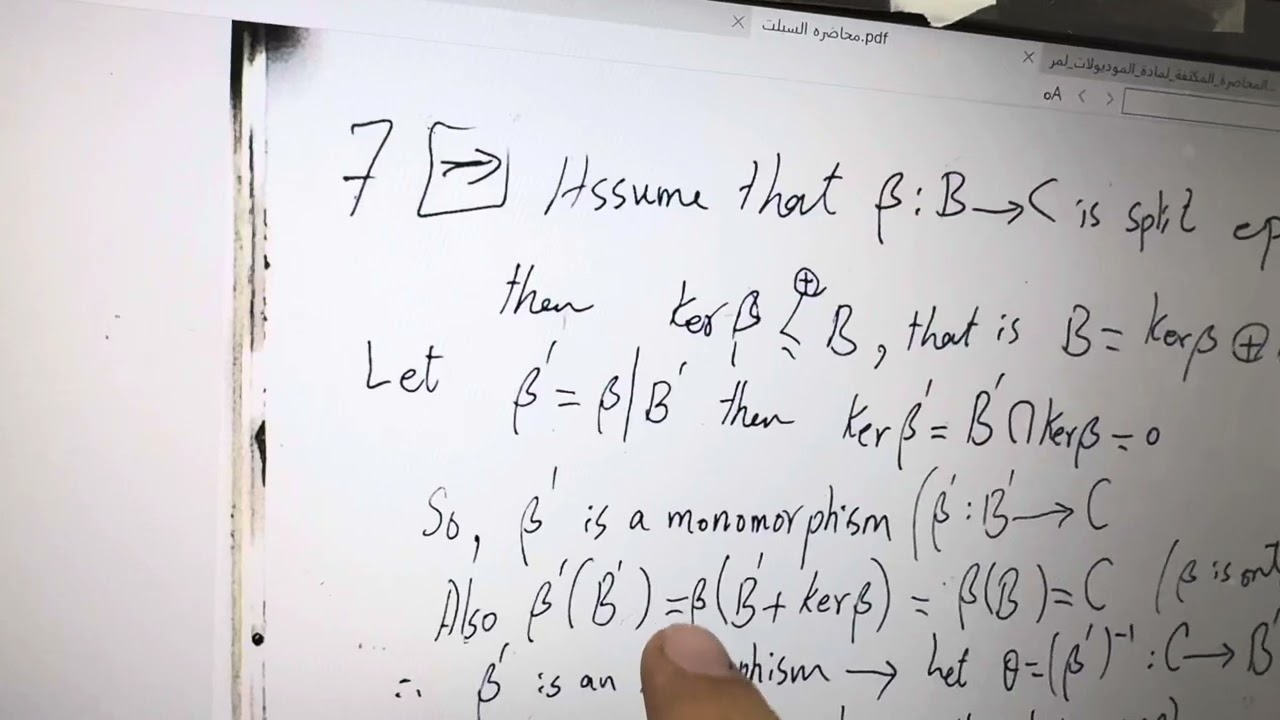 محاضره السبلت.pdf
المحاضرة_المكثفة_لمادة_الموديولات_لمر
7 ⇒ Assume that β : B → C is split
then ker β ≤⊕ B, that is B = ker β ⊕
Let β' = β|B' then ker β' = B' ∩ ker β = 0
So, β' is a monomorphism (β' : B' → C
Also β'(B') = β(B' + ker β) = β(B) = C (β is ont
∴ β' is an phism → Let θ = (β')⁻¹ : C → B'